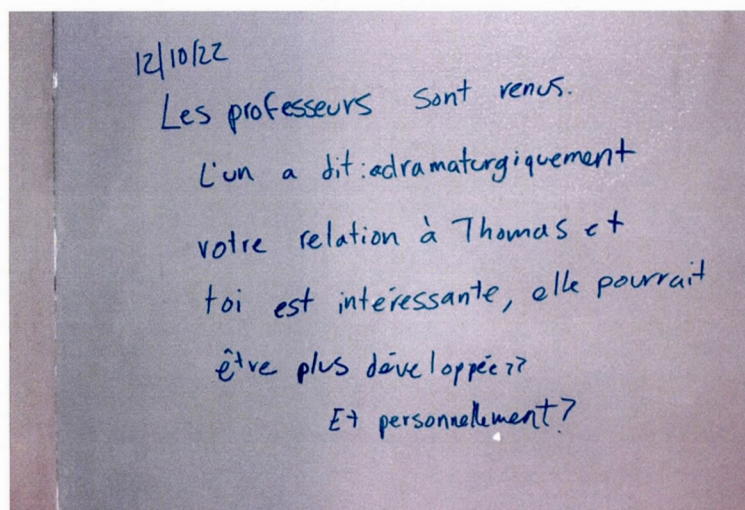 12/10/22
Les professeurs sont venus.
L'un a dit: «dramaturgiquement
votre relation à Thomas et
toi est intéressante, elle pourrait
être plus développée»
Et personnellement?